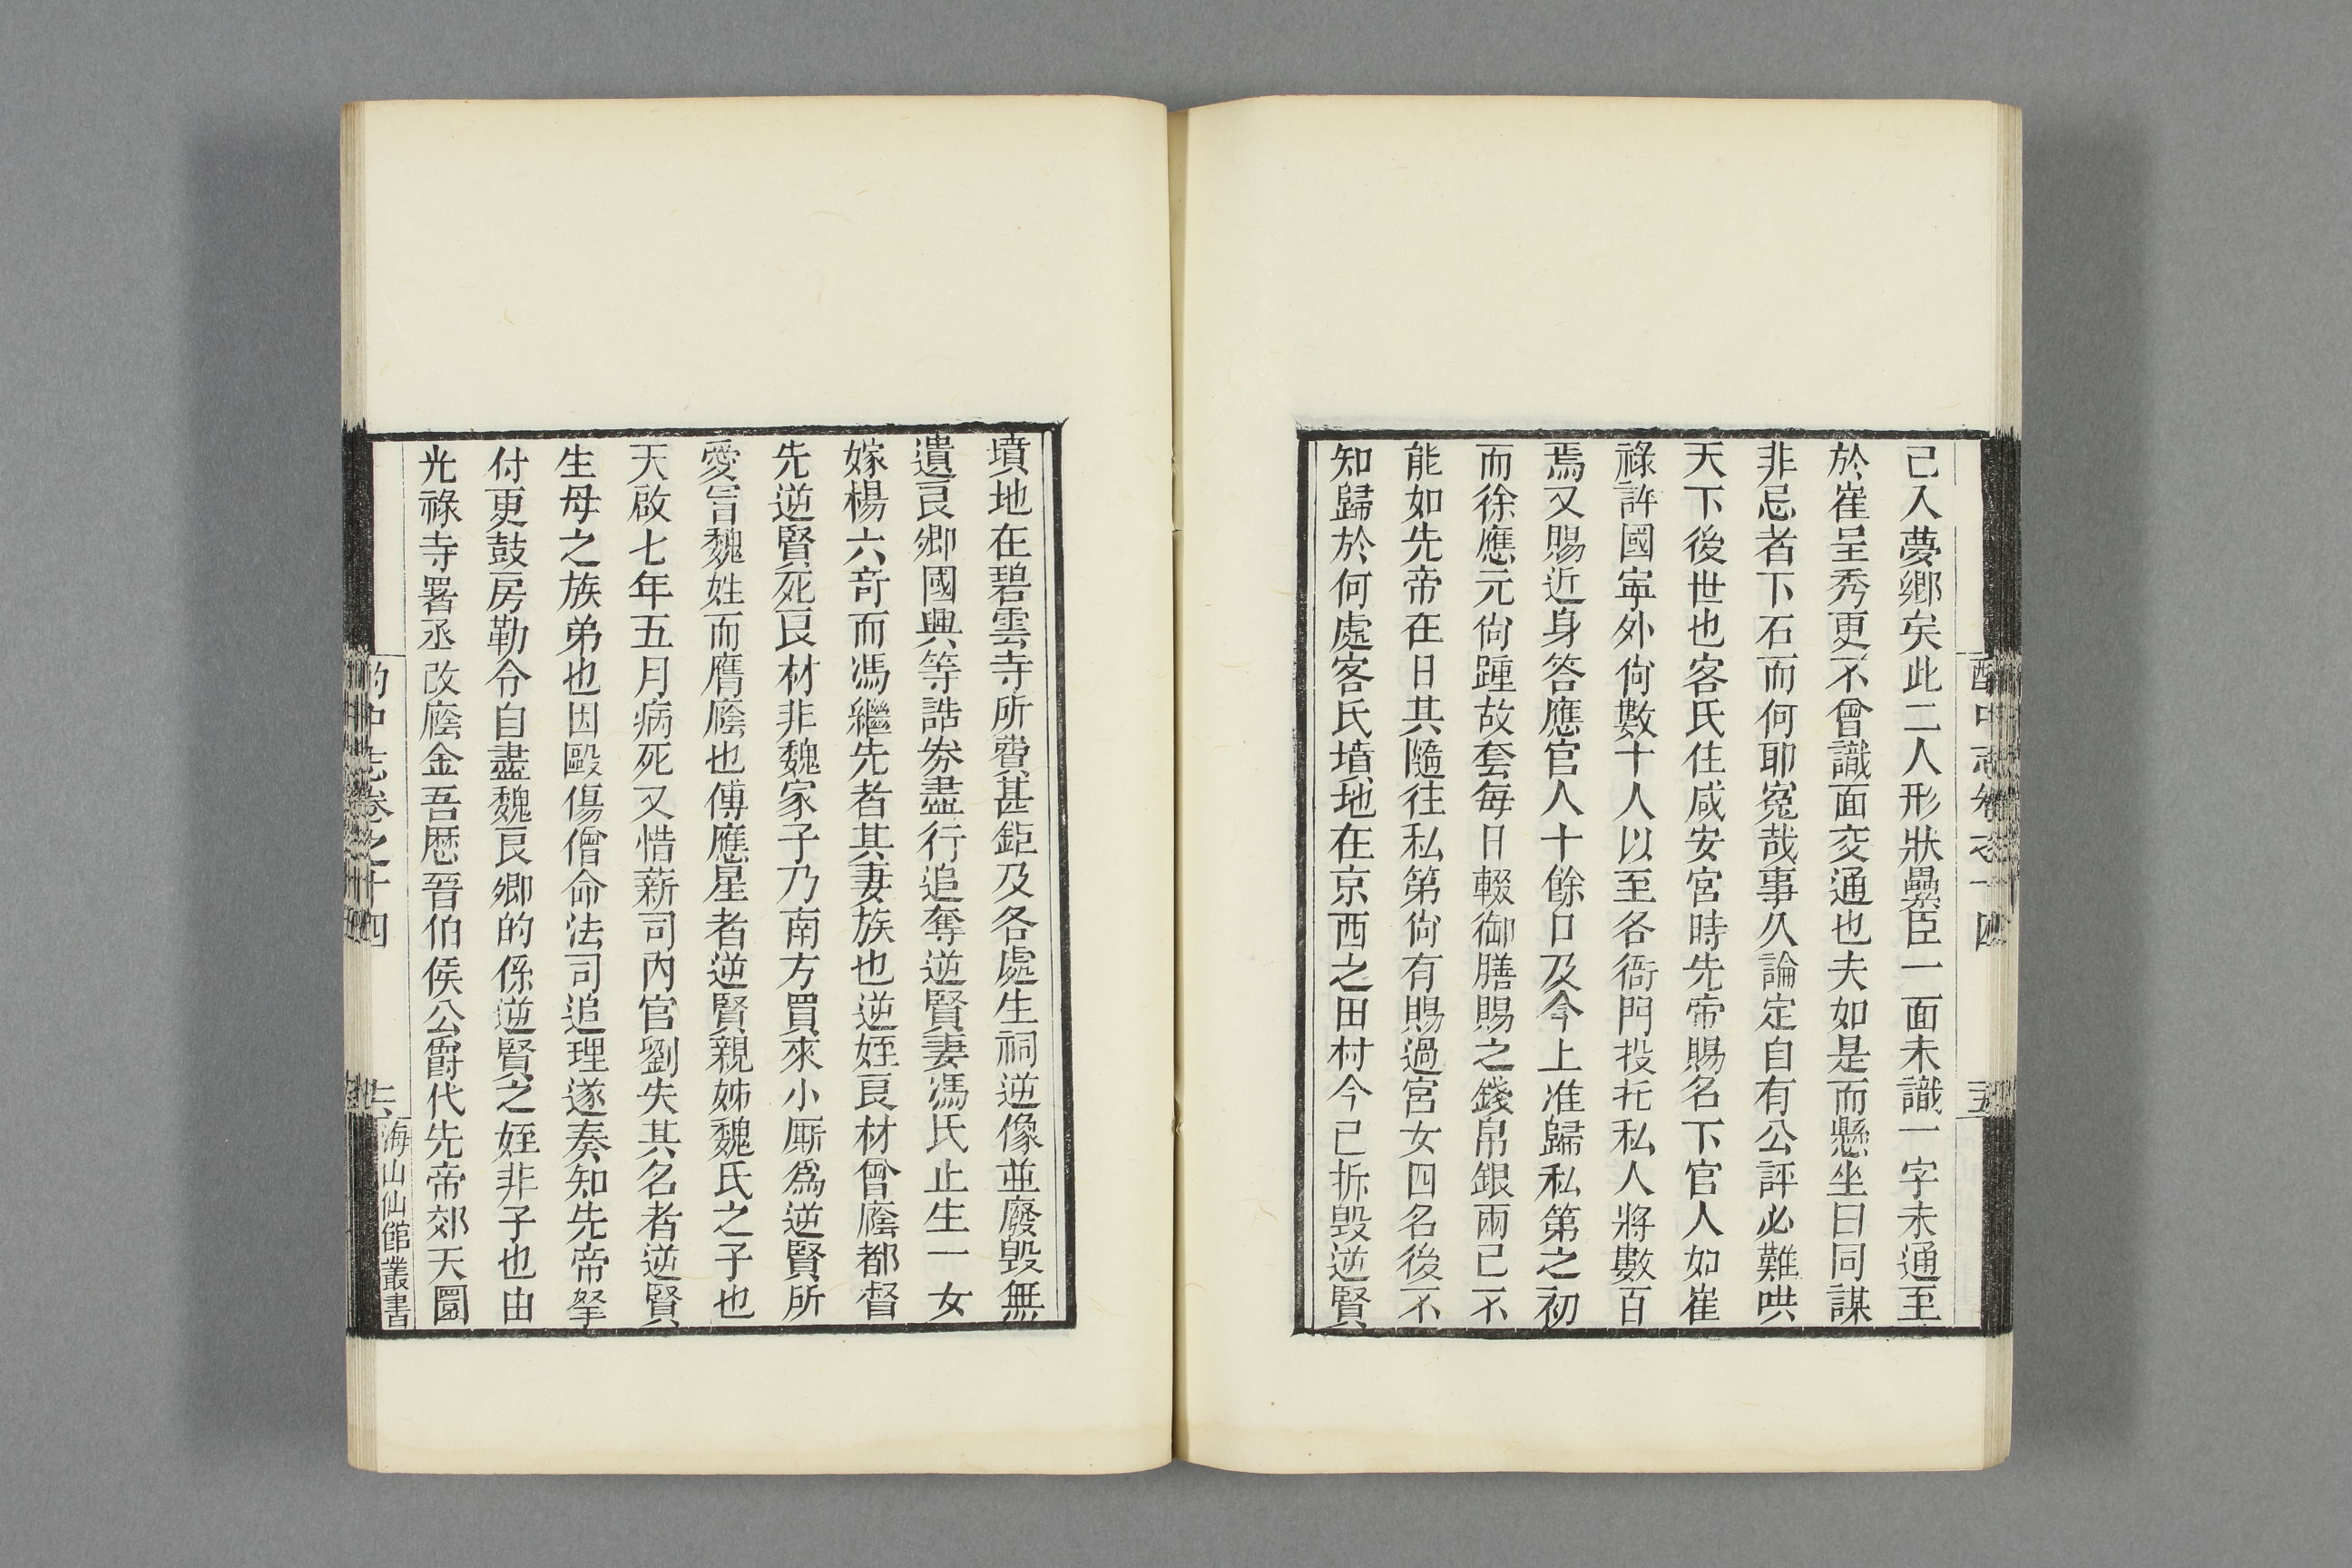 酌中志卷之十四
己入夢鄉矣此二人形狀纍臣一面未識一字未通至
於崔呈秀更不曾識面交通也夫如是而懸坐曰同謀
非忌者下石而何耶寃哉事久論定自有公評必難哄
天下後世也客氏住咸安宮時先帝賜名下官人如崔
祿許國寧外尙數十人以至各衙門投托私人將數百
焉又賜近身答應官人十餘口及今上准歸私第之初
而徐應元尙踵故套每日輟御膳賜之錢帛銀兩已不
能如先帝在日其隨往私第尙有賜過宮女四名後不
知歸於何處客氏墳地在京西之田村今已拆毀逆賢
墳地在碧雲寺所費甚鉅及各處生祠逆像並廢毀無
遺良卿國興等誥券盡行追奪逆賢妻馮氏止生一女
嫁楊六竒而馮繼先者其妻族也逆姪良材曾廕都督
先逆賢死良材非魏家子乃南方買來小厮爲逆賢所
愛冐魏姓而膺廕也傅應星者逆賢親姊魏氏之子也
天啟七年五月病死又惜薪司內官劉失其名者逆賢
生母之族弟也因毆傷僧命法司追理遂奏知先帝拏
付更鼓房勒令自盡魏良卿的係逆賢之姪非子也由
光祿寺署丞改廕金吾歷晉伯侯公爵代先帝郊天圜
酌中志卷之十四
十六
海山仙館叢書